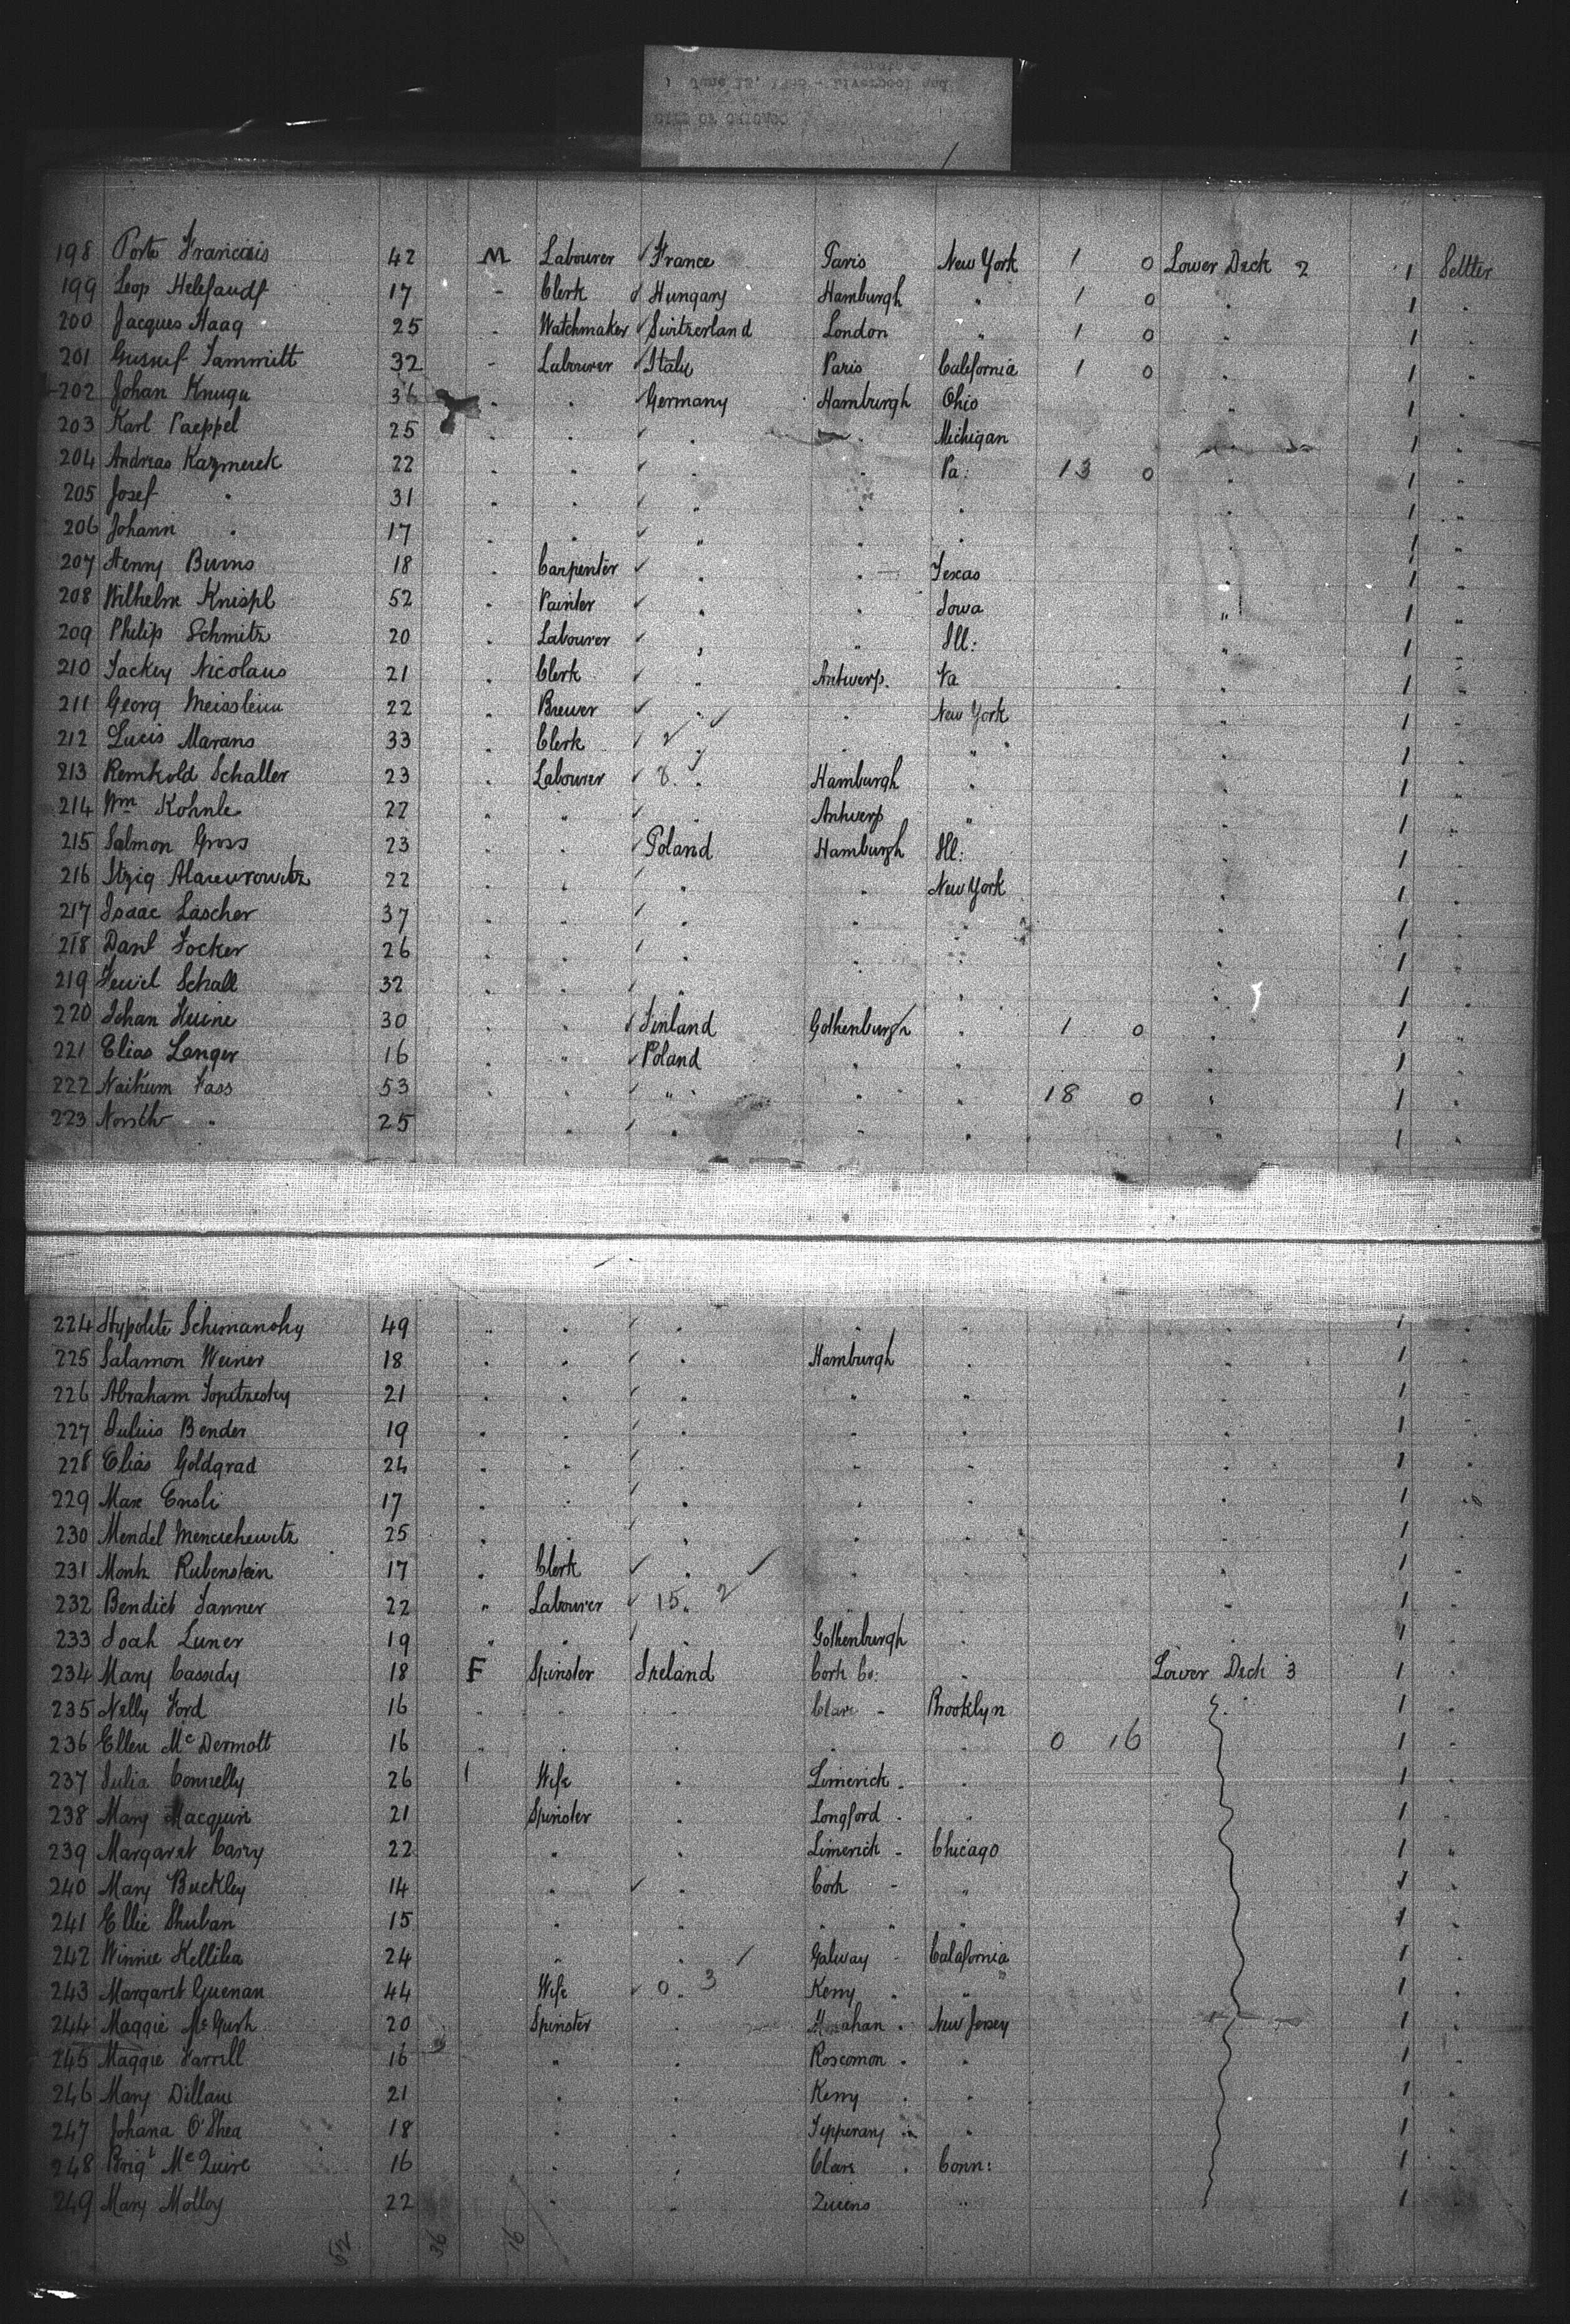 198 Porte Francois 42 M Labourer France Paris New York 1 0 Lower Deck 2 1 Settler
199 Leop 17 " Clerk Hungary Hamburgh " 1 0 " 1 "
200 Jacques Haag 25 " Watchmaker Switzerland London " 1 0 " 1 "
201 32 " Labourer Italy Paris California 1 0 " 1 "
202 Johan 36 " " Germany Hamburgh Ohio " 1 "
203 Karl Paeppel 25 " " " " Michigan " 1 "
204 Andreas Kazmerek 22 " " " " Pa: 13 0 " 1 "
205 Josef " 31 " " " " " " 1 "
206 Johann " 17 " " " " " " 1 "
207 Henny Burns 18 " Carpenter " " Texas " 1 "
208 Wilhelm Knispl 52 " Painter " " Iowa " 1 "
209 Philip Schmitz 20 " Labourer " " Ill: " 1 "
210 Nicolaus 21 " Clerk " Antwerp. " 1 "
211 Georg 22 " Brewer " " New York " 1 "
212 Marans 33 " Clerk " " " 1 "
213 Schaller 23 " Labourer 8 " Hamburgh " " 1 "
214 Wm Kohnle 22 " " " Antwerp " " 1 "
215 Salmon Gross 23 " " Poland Hamburgh Ill: " 1 "
216 Itzig 22 " " " " New York " 1 "
217 Isaac Lascher 37 " " " " " " 1 "
218 Danl 26 " " " " " " 1 "
219 Schall 32 " " " " " " 1 "
220 Johan 30 " " Finland Gothenburgh " 1 0 " 1 "
221 Elias Langer 16 " " Poland " " " 1 "
222 Nathum Fass 53 " " " " " 18 0 " 1 "
223 " 25 " " " " " 1 "
224 Hypolite Schimansky 49 " " " " " 1 "
225 Salamon Weiner 18 " " " Hamburgh " " 1 "
226 Abraham 21 " " " " " " 1 "
227 Julius Bender 19 " " " " " " 1 "
228 Elias Goldgrad 24 " " " " " " 1 "
229 Max Ensli 17 " " " " " " 1 "
230 Mendel 25 " " " " " " 1 "
231 Rubenstein 17 " Clerk " " " " 1 "
232 Bendict Tanner 22 " Labourer 15 2 " " " 1 "
233 Luner 19 " " " Gothenburgh " " 1 "
234 Mary Cassidy 18 F Spinster Ireland Cork Co: " Lower Deck 3 1 "
235 Nelly Ford 16 " " " Clare " Brooklyn " 1 "
236 Ellen McDermott 16 " " " " " 0 16 1 "
237 Julia Connelly 26 Wife " Limerick " " 1 "
238 Mary Macquin 21 Spinster " Longford " " 1 "
239 Margaret Casey 22 " " Limerick " Chicago 1 "
240 Mary Buckley 14 " " Cork " " 1 "
241 Ellie 15 " " " " " 1 "
242 Winnie Kellilea 24 " " Galway " Calafornia 1 "
243 Margaret Guenan 44 Wife 0 3 Kerry " " 1 "
244 Maggie 20 Spinster " New Jersey 1 "
245 Maggie Farrell 16 " " Roscomon " " 1 "
246 Mary Dillane 21 " " Kerry " " 1 "
247 Johana O'Shea 18 " " Tipperary " " 1 "
248 Brigt McQuire 16 " " Clare " Conn: 1 "
249 Mary Molloy 22 " " " 1 "
52 36 16